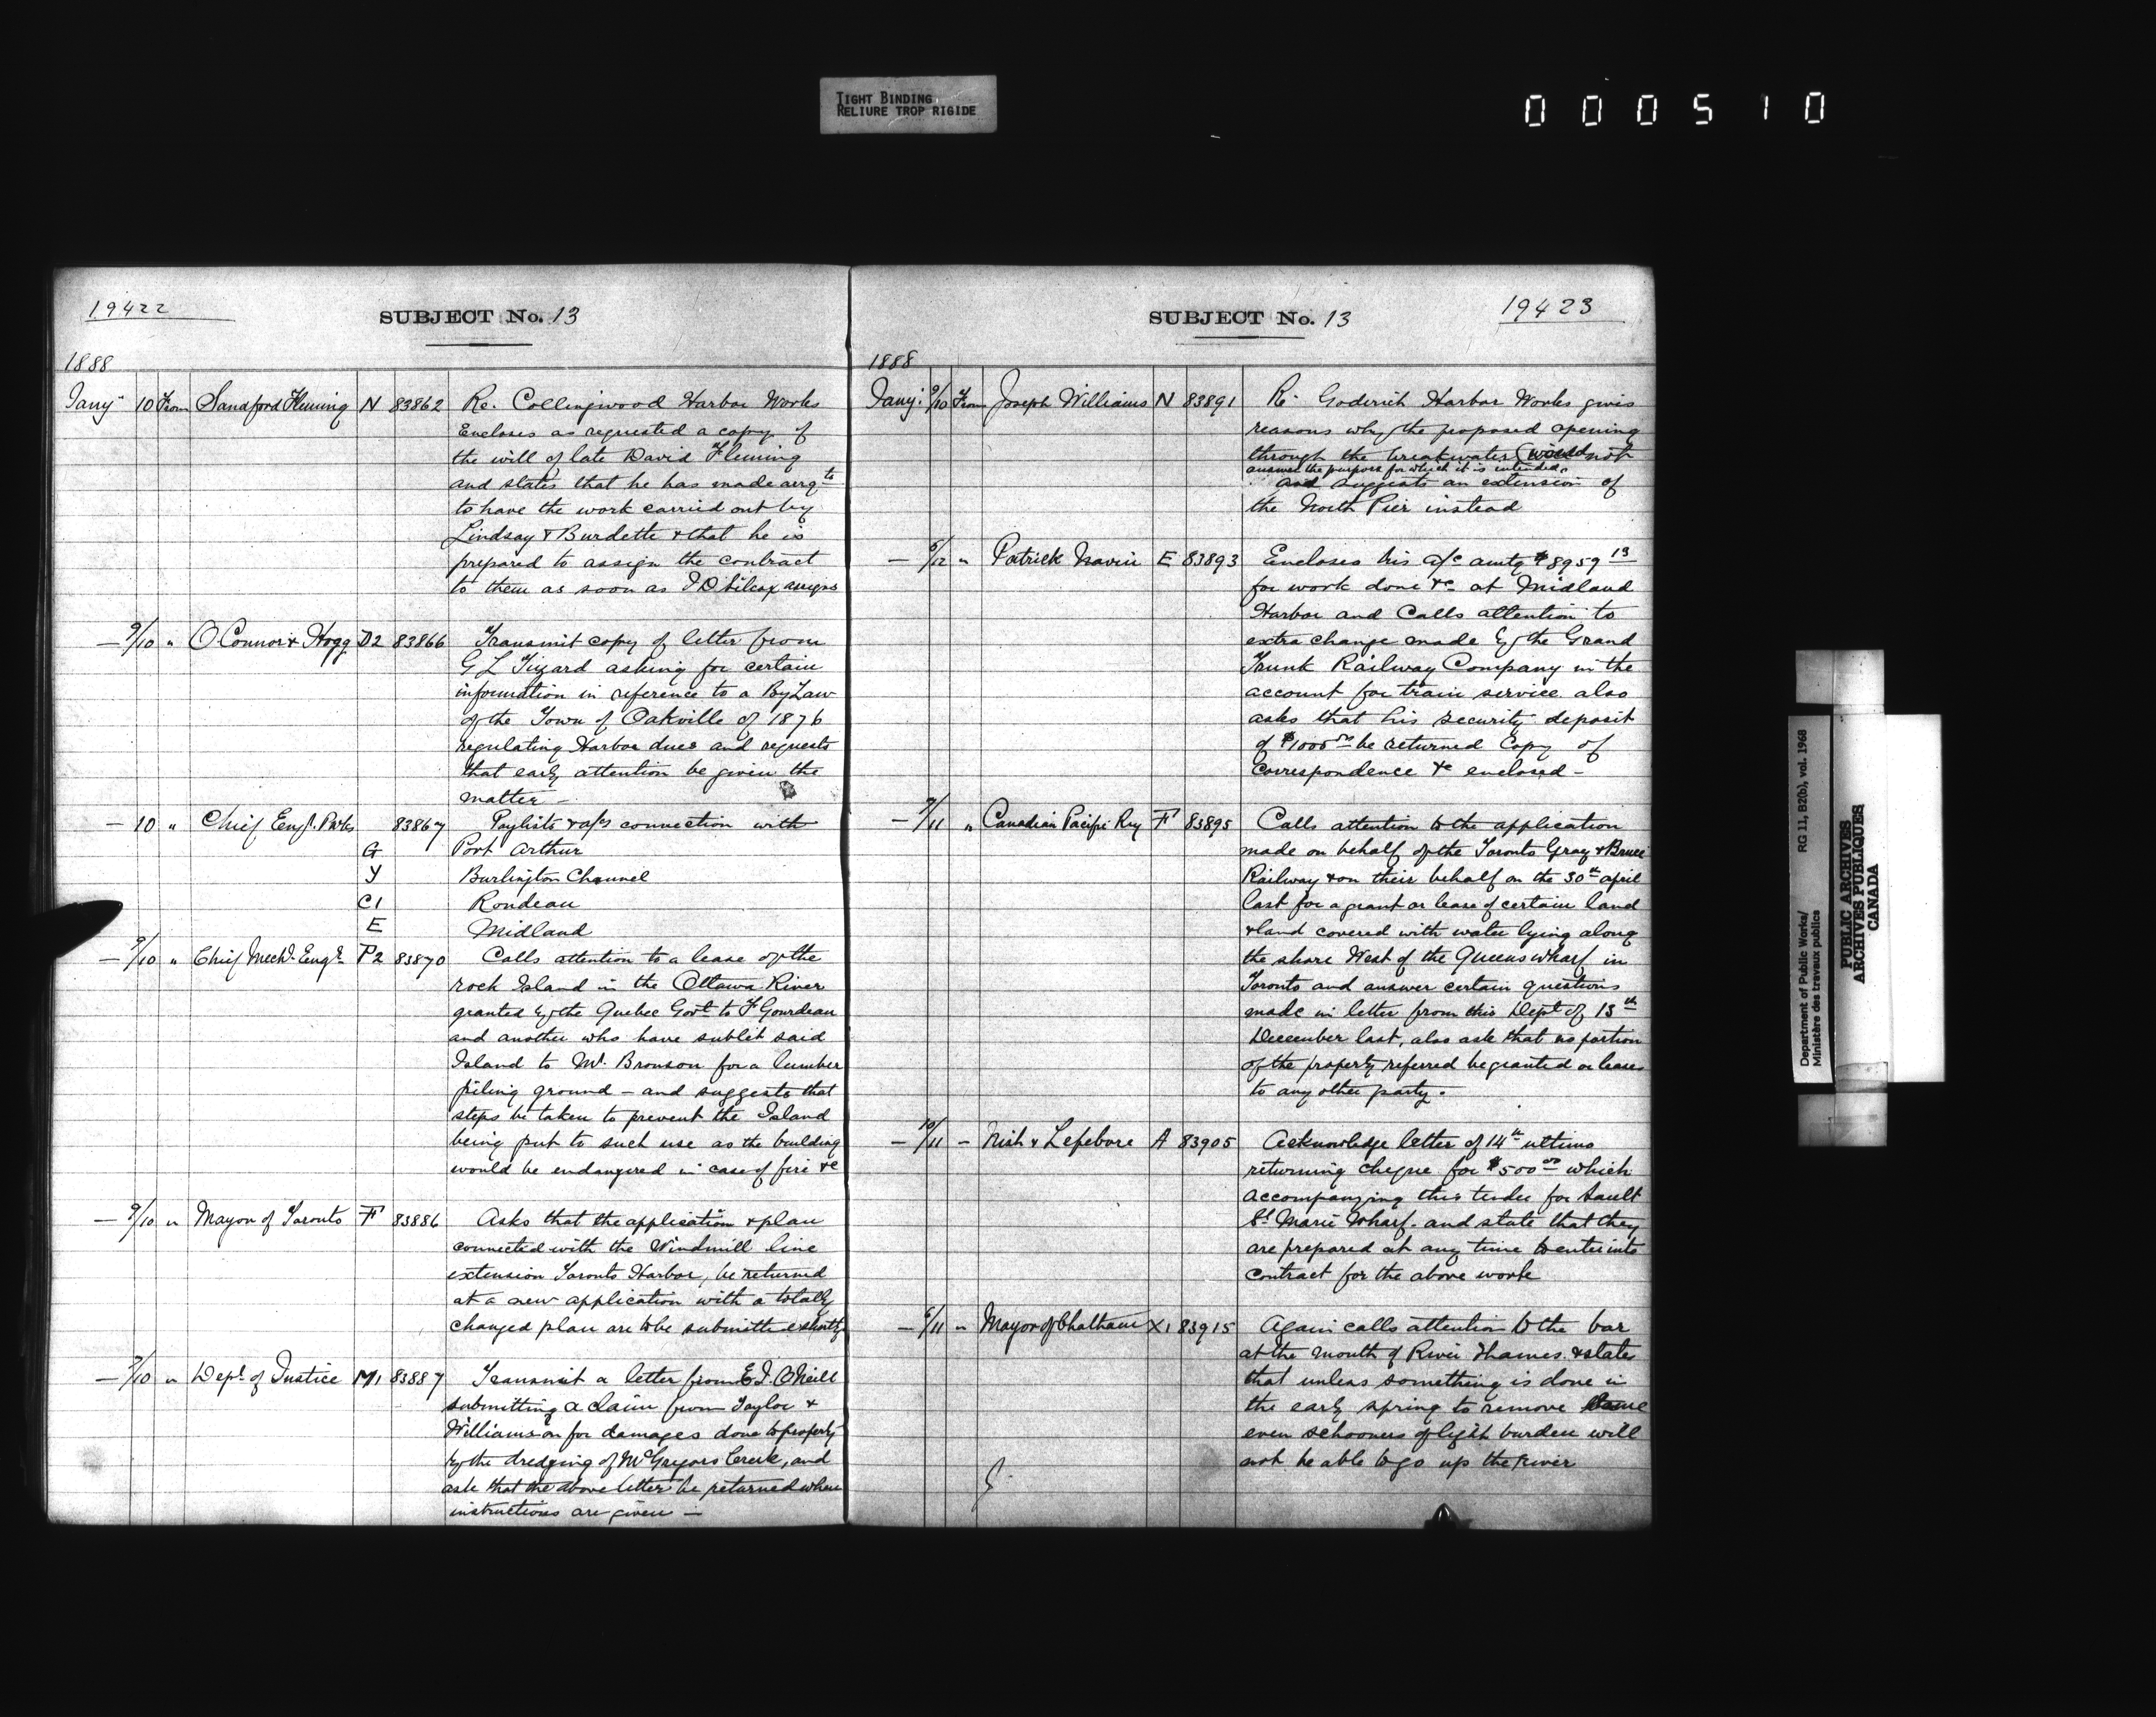 TIGHT BINDING
RELIURE TROP RIGIDE
000510
19422
SUBJECT No. 13
1888
Jany 10 From Sandford Fleming N 83862 Re. Collingwood Harbor Works
Encloses as requested a copy of
the will of late David Fleming
and states that he has made arrgts
to have the work carried out by
Lindsay & Burdette & that he is
prepared to assign the contract
to them as soon as J D Silcox assigns
— 9/10 " O'Connor & Hogg D2 83866 Transmit copy of letter from
G L Tizard asking for certain
information in reference to a By Law
of the Town of Oakville of 1876
regulating Harbor dues and requests
that early attention be given the
matter —
— 10 " Chief Engr. P. Wks 83867 Paylists & a/cs connection with
G Port Arthur
Y Burlington Channel
C1 Rondeau
E Midland
— 9/10 " Chief Mechl. Engr. P2 83870 Calls attention to a lease of the
rock Island in the Ottawa River
granted by the Quebec Govt to F Gourdeau
and another who have sublet said
Island to Mr. Bronson for a lumber
piling ground — and suggests that
steps be taken to prevent the Island
being put to such use as the building
would be endangered in case of fire &c
— 9/10 " Mayor of Toronto F 83886 Asks that the application & plan
connected with the Windmill line
extension Toronto Harbor, be returned
at a new application with a totally
changed plan are to be submitted shortly
— 7/10 " Dept. of Justice M1 83887 Transmit a letter from E. J. O'Neill
submitting a claim from Taylor &
Williamson for damages done to property
by the dredging of McGregors Creek, and
ask that the above letter be returned when
instructions are given —
SUBJECT No. 13
19423
1888
Jany. 9/10 From Joseph Williams N 83891 Re. Goderich Harbor Works gives
reasons why the proposed opening
through the breakwater would not
answer the purpose for which it is intended.
and suggests an extension of
the North Pier instead
— 5/12 " Patrick Navin E 83893 Encloses his a/c amtg $8959 13
for work done &c at Midland
Harbor and Calls attention to
extra change made by the Grand
Trunk Railway Company in the
account for train service also
asks that his security deposit
of $1000 00 be returned Copy of
Correspondence &c enclosed —
— 9/11 " Canadian Pacific Ry F 83895 Calls attention to the application
made on behalf of the Toronto Gray & Bruce
Railway & on their behalf on the 30th april
last for a grant or lease of certain land
& land covered with water lying along
the shore West of the Queens wharf in
Toronto and answer certain questions
made in letter from this Dept of 13th
December last, also ask that no portion
of the property referred be granted or leases
to any other party.
— 10/11 — Nish & Lefebvre A 83905 Acknowledge letter of 14th ultimo
returning cheque for $500 00 which
accompanying their tender for Sault
St. Marie Wharf. and state that they
are prepared at any time to enter into
contract for the above work
— 6/11 " Mayor of Chatham X1 83915 Again calls attention to the bar
at the mouth of River Thames. & states
that unless something is done in
the early spring to remove same
even schooners of light burden will
not be able to go up the River
Department of Public Works/ RG 11, B2(b), vol. 1968
Ministère des travaux publics
PUBLIC ARCHIVES
ARCHIVES PUBLIQUES
CANADA